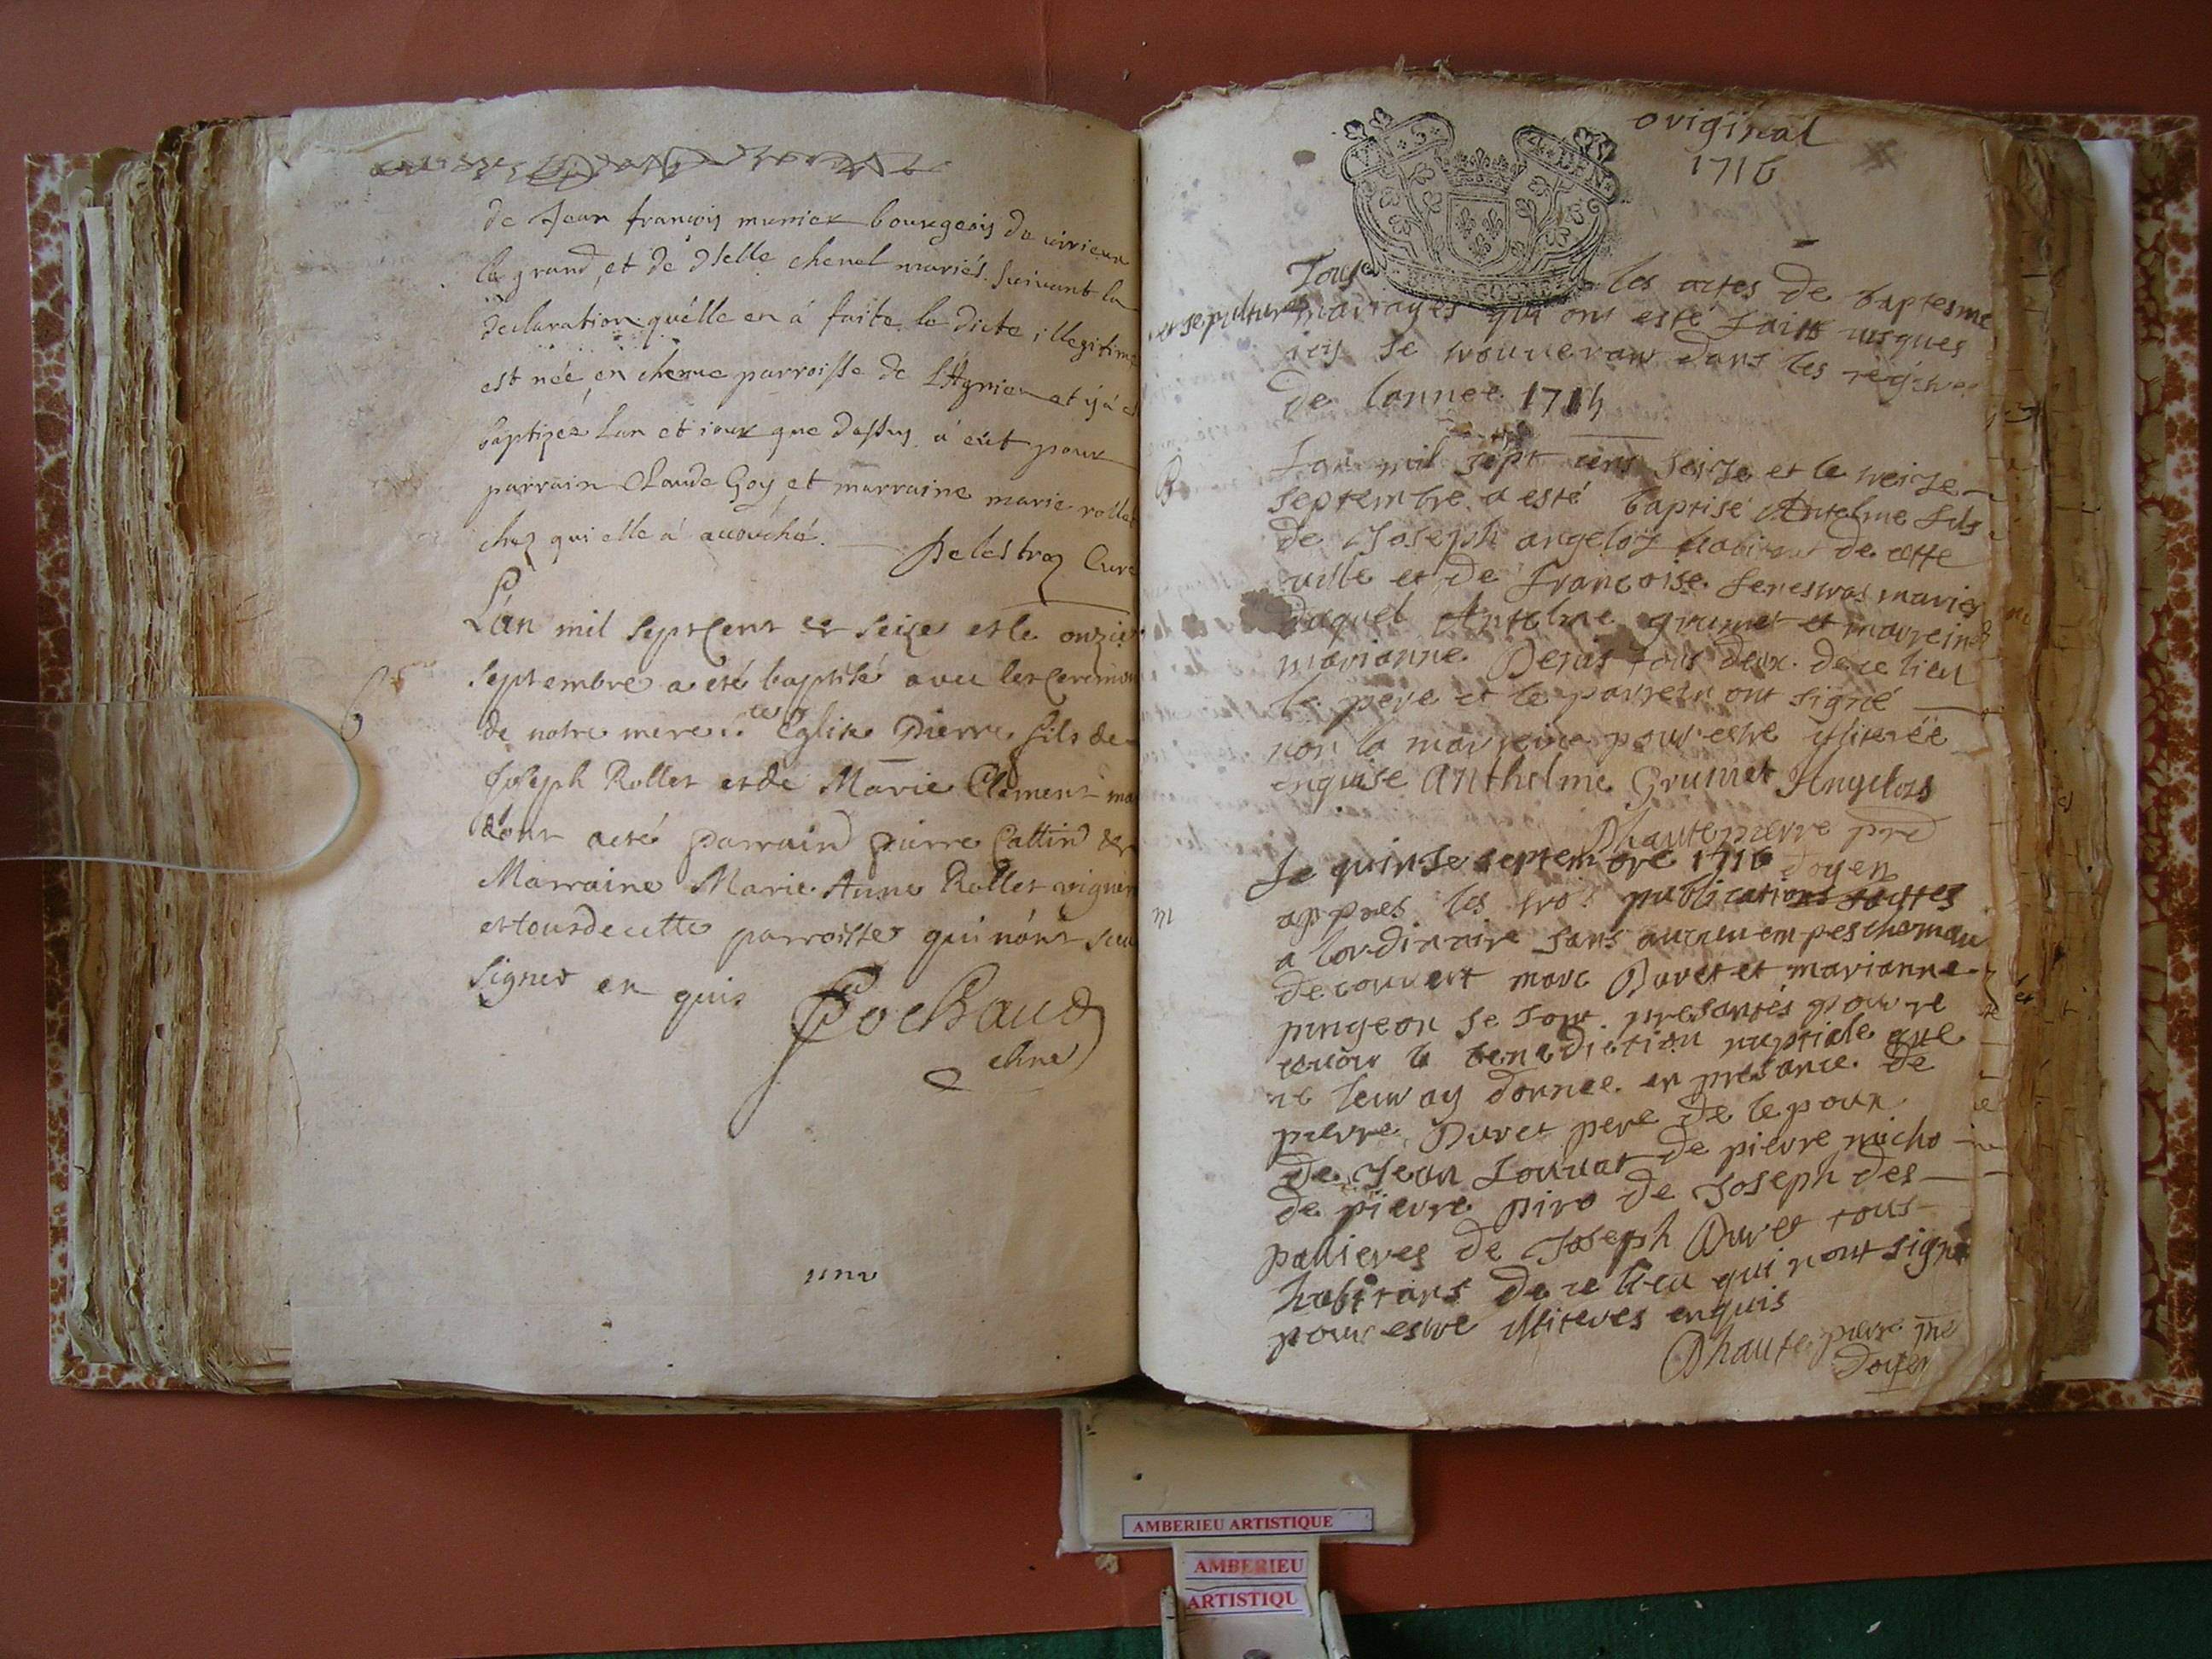 de Jean françois munier bourgeois de virieu
le grand, et de dselle chenel mariés suivant la
declaration quélle en á faite. la dicte illegitime
est née en parroisse de et ÿ á
baptizée Lan et iour que dessus á eüt pour
parrain Claude Goy et marraine marie rollet
chez qui elle á accouché. Delestraz Curé
L'an mil sept cent et seize et le onzie
septembre a eté baptisé avec les ceremon
de notre mere ste Eglise Pierre fils de
Joseph Rollet et de Marie Clement ma
dont a eté parrain pierre Cattin et
Marraine Marie Anne Rollet
et tous de cette parroisse qui n'ont sceu
signer en quis Pochaud
B
original
1716
Tous les actes de baptesme
et sepultures mariages qui ont esté faits iusques
icy se trouueront dans les
de lannee 1715
B
Lan mil sept cens seize et le treize
septembre a esté baptisé Antelme fils
de Joseph angeloz habitant de cette
ville et de françoise mariés
duquel Antelme grumet et marreine
marianne tous deux de ce lieu
le pere et le parrein ont signé
non la marreine pour estre illiterée
enquise Anthelme Grumet Angelos
Dhautepierre pre
doyen
Le quinse septembre 1716
m
appres les trois publications faittes
a lordinaire sans aucun empeschemen
decouuert marc Duret et marianne
pingeon se sont presantés pour re
ceuoir la benediction nuptiale que
ie leur ay donnee en presance de
pierre Duret pere de lepoux
de Jean Louuat de pierre micho
de pierre piro de Joseph des
panieres de Joseph Duret tous
habitans de ce lieu qui nont signé
pour estre illiteres enquis
Dhautepierre pre
doyen
AMBERIEU ARTISTIQUE
AMBERIEU
ARTISTIQU